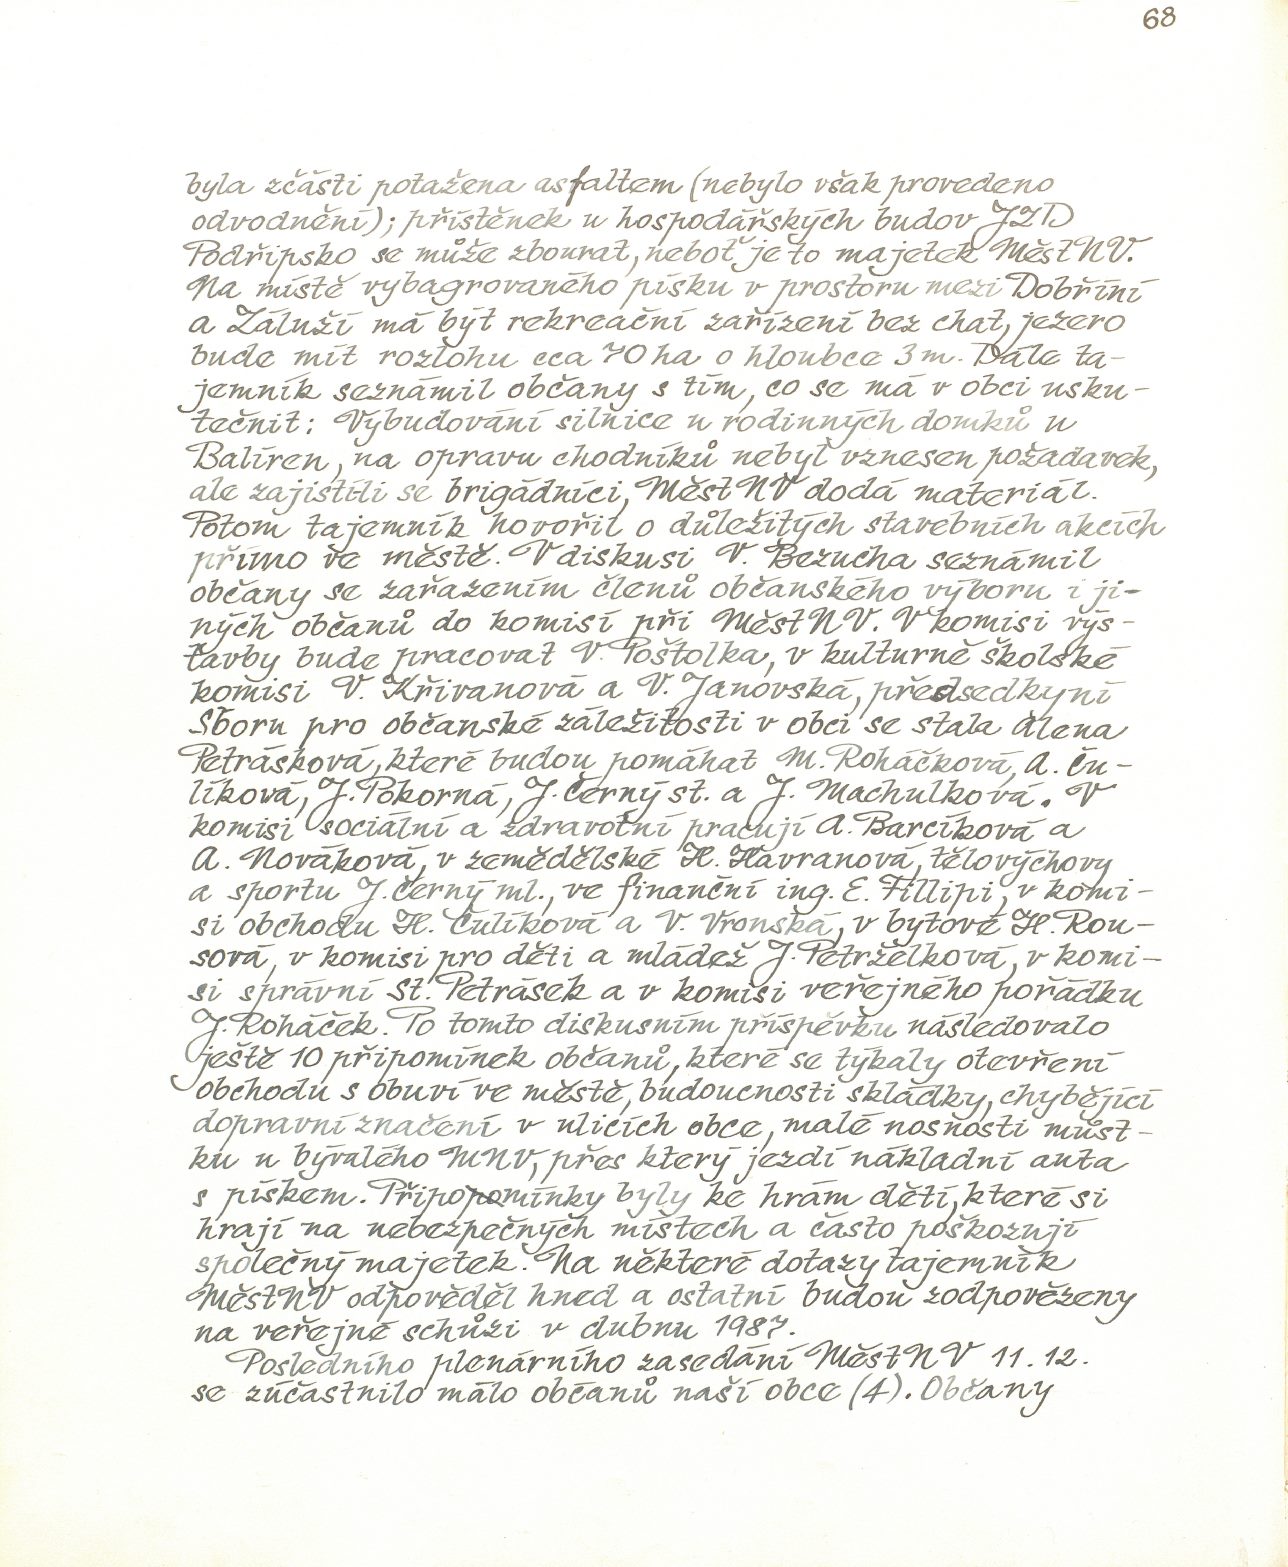 68
byla zčásti potažena asfaltem (nebylo však provedeno
odvodnění); přístěnek u hospodářských budov JZD
Podřipsko se může zbourat, neboť je to majetek MěstNV.
Na místě vybagrovaného písku v prostoru mezi Dobříní
a Záluží má být rekreační zařízení bez chat, jezero
bude mít rozlohu cca 70 ha o hloubce 3 m. Dále ta-
jemník seznámil občany s tím, co se má v obci usku-
tečnit: Vybudování silnice u rodinných domků u
Balíren, na opravu chodníků nebyl vznesen požadavek,
ale zajistí-li se brigádníci, MěstNV dodá materiál.
Potom tajemník hovořil o důležitých stavebních akcích
přímo ve městě. V diskusi V. Bezucha seznámil
občany se zařazením členů občanského výboru i ji-
ných občanů do komisí při MěstNV. V komisi výs-
tavby bude pracovat V. Poštolka, v kulturně školské
komisi V. Křivanová a V. Janovská, předsedkyní
Sboru pro občanské záležitosti v obci se stala Alena
Petrásková, které budou pomáhat M. Roháčková, A. Ču-
líková, J. Pokorná, J. Černý st. a J. Machulková. V
komisi sociální a zdravotní pracují A. Barcíková a
A. Nováková, v zemědělské H. Havranová, tělovýchovy
a sportu J. Černý ml., ve finanční ing. E. Fillipi, v komi-
si obchodu H. Čulíková a V. Vronská, v bytové H. Rou-
sová, v komisi pro děti a mládež J. Petrželková, v komi-
si správní St. Petrásek a v komisi veřejného pořádku
J. Roháček. Po tomto diskusním příspěvku následovalo
ještě 10 připomínek občanů, které se týkaly otevření
obchodu s obuví ve městě, budoucnosti skládky, chybějící
dopravní značení v ulicích obce, malé nosnosti můst-
ku u bývalého MNV, přes který jezdí nákladní auta
s pískem. Připopomínky byly ke hrám dětí, které si
hrají na nebezpečných místech a často poškozují
společný majetek. Na některé dotazy tajemník
MěstNV odpověděl hned a ostatní budou zodpovězeny
na veřejné schůzi v dubnu 1987.
Posledního plenárního zasedání MěstNV 11. 12.
se zúčastnilo málo občanů naší obce (4). Občany